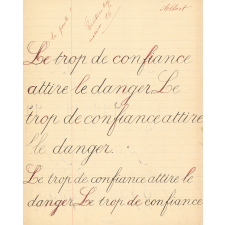 Albert
Le trop de confiance
attire le danger. Le
trop de confiance attire
le danger.
Le trop de confiance attire le
danger. Le trop de confiance